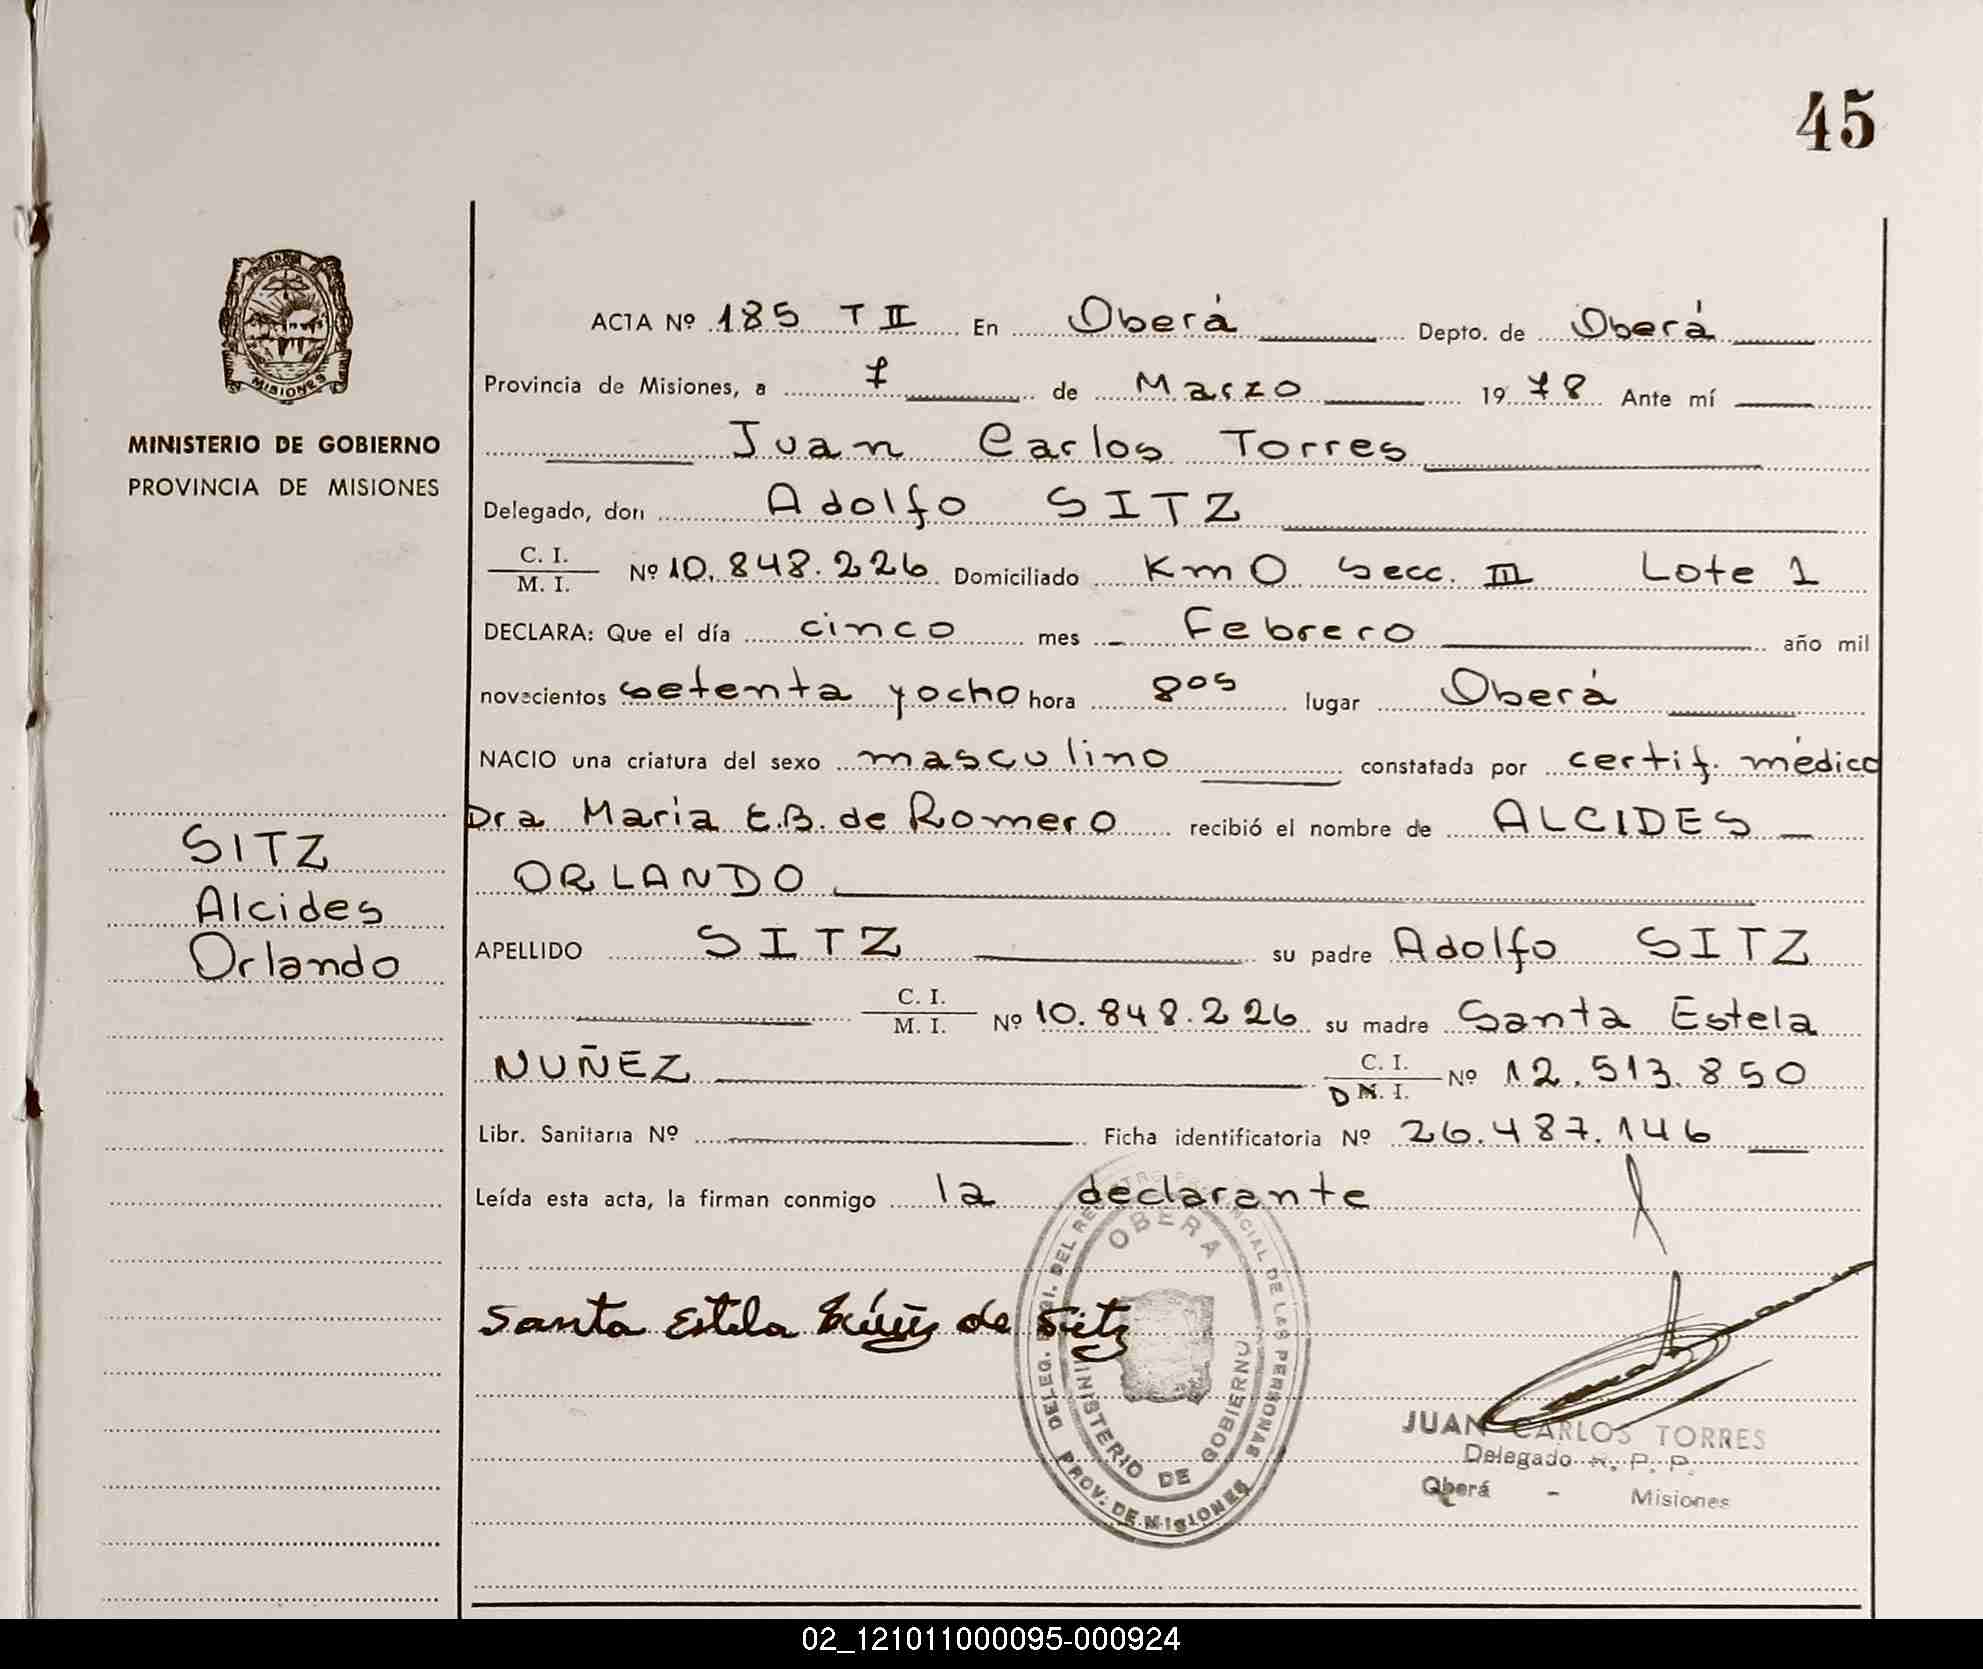 45
PROVINCIA DE
MISIONES
MINISTERIO DE GOBIERNO
PROVINCIA DE MISIONES
SITZ
Alcides
Orlando
ACTA Nº 185 T II En Oberá Depto. de Oberá
Provincia de Misiones, a 7 de Marzo 1978 Ante mí
Juan Carlos Torres
Delegado, don Adolfo SITZ
C. I.
M. I.
Nº 10.848.226 Domiciliado Km 0 Secc. III Lote 1
DECLARA: Que el día cinco mes Febrero año mil
novecientos setenta y ocho hora 8 05 lugar Oberá
NACIO una criatura del sexo masculino constatada por certif. médico
Dra Maria E.B. de Romero recibió el nombre de ALCIDES
ORLANDO
APELLIDO SITZ su padre Adolfo SITZ
C. I.
M. I.
Nº 10.848.226 su madre Santa Estela
NUÑEZ
C. I.
D M. I.
Nº 12.513.850
Libr. Sanitaria Nº Ficha identificatoria Nº 26.487.146
Leída esta acta, la firman conmigo la declarante
Santa Estela de Sitz
DELEG. DEL REGISTRO PROVINCIAL DE LAS PERSONAS
OBERA
MINISTERIO DE GOBIERNO
PROV. DE MISIONES
JUAN CARLOS TORRES
Delegado R. P. P.
Oberá - Misiones
02_121011000095-000924